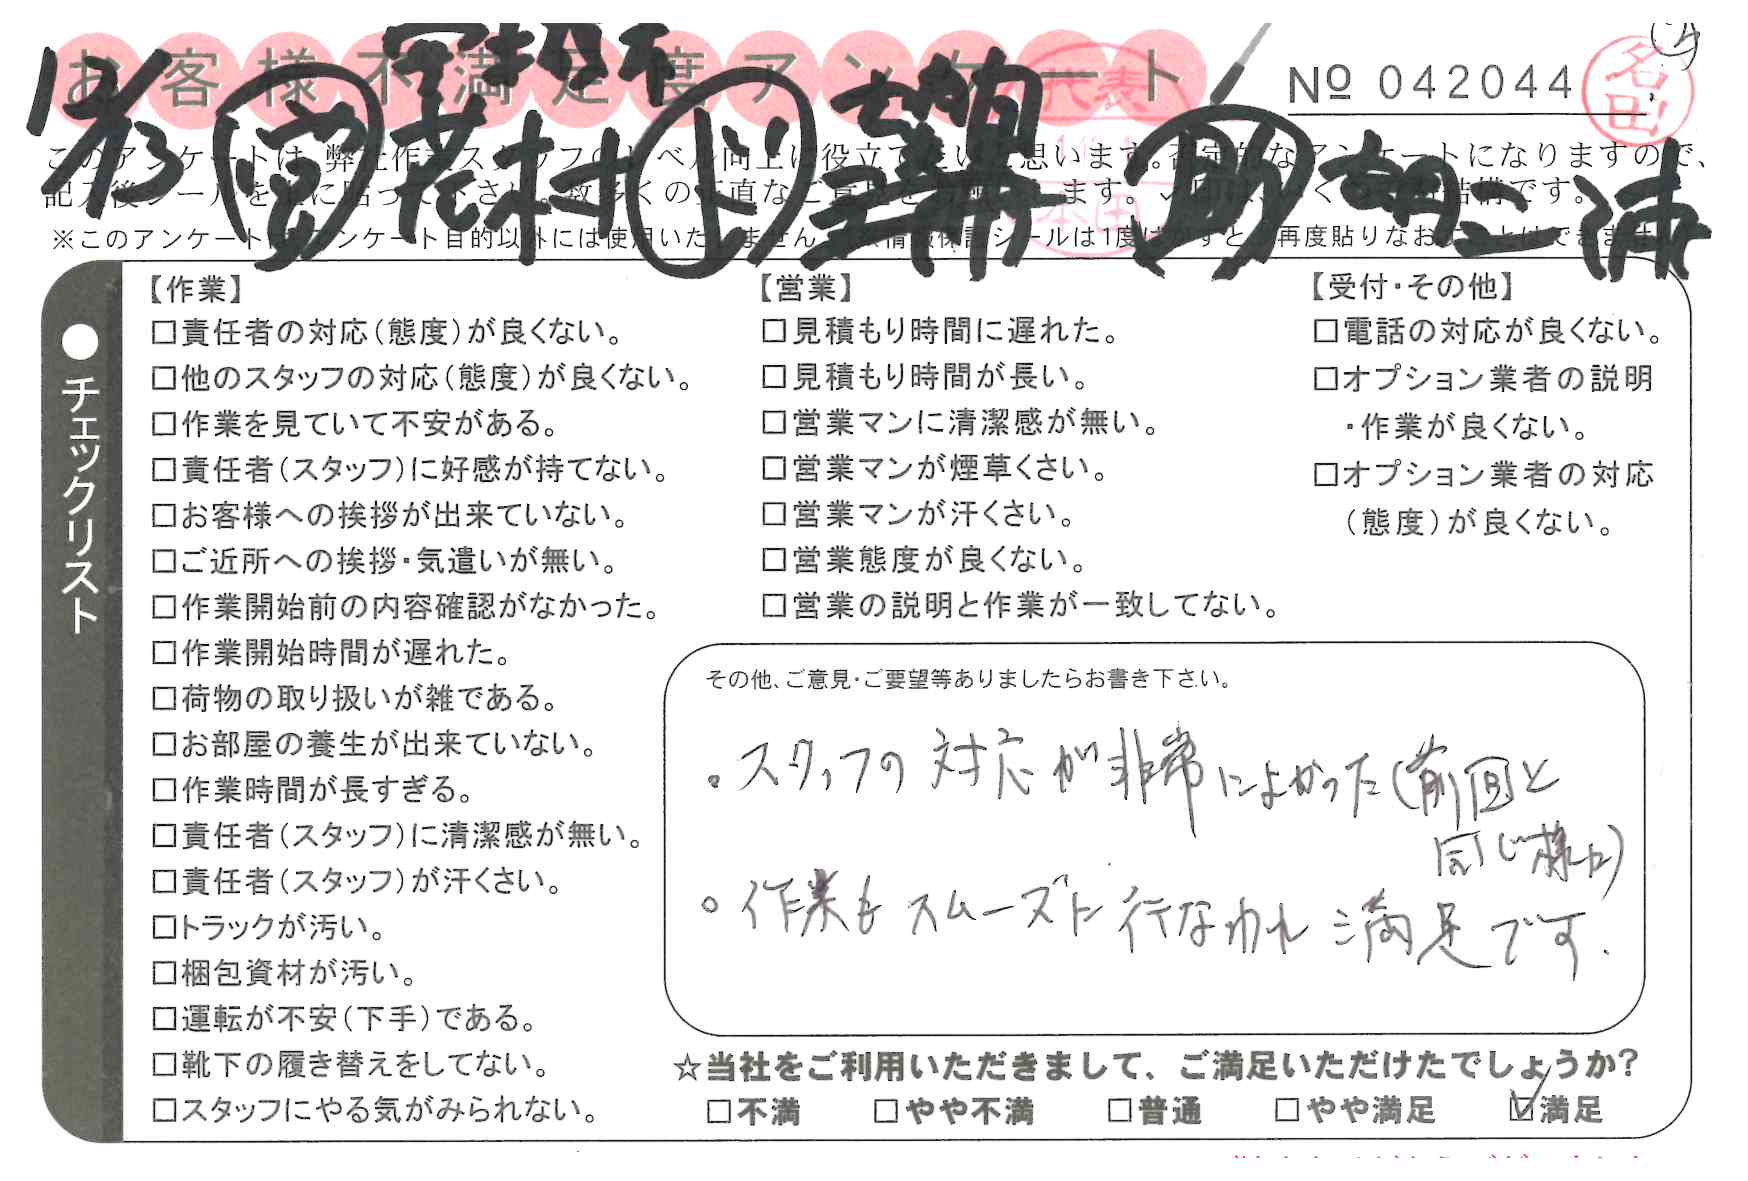 お客様不満足度アンケート
Nº 042044
名田
12/13
花村
三浦
代表
このアンケートは、弊社作業スタッフのレベル向上に役立てたいと思います。否定的なアンケートになりますので、
【作業】
□責任者の対応(態度)が良くない。
□他のスタッフの対応(態度)が良くない。
□作業を見ていて不安がある。
□責任者(スタッフ)に好感が持てない。
□お客様への挨拶が出来ていない。
□ご近所への挨拶・気遣いが無い。
□作業開始前の内容確認がなかった。
□作業開始時間が遅れた。
□荷物の取り扱いが雑である。
□お部屋の養生が出来ていない。
□作業時間が長すぎる。
□責任者(スタッフ)に清潔感が無い。
□責任者(スタッフ)が汗くさい。
□トラックが汚い。
□梱包資材が汚い。
□運転が不安(下手)である。
□靴下の履き替えをしてない。
□スタッフにやる気がみられない。
【営業】
□見積もり時間に遅れた。
□見積もり時間が長い。
□営業マンに清潔感が無い。
□営業マンが煙草くさい。
□営業マンが汗くさい。
□営業態度が良くない。
□営業の説明と作業が一致してない。
【受付・その他】
□電話の対応が良くない。
□オプション業者の説明
・作業が良くない。
□オプション業者の対応
(態度)が良くない。
●チェックリスト
その他、ご意見・ご要望等ありましたらお書き下さい。
・スタッフの対応が非常によかった(前回と
同じ様に)
○作業もスムーズに行なわれ満足です.
☆当社をご利用いただきまして、ご満足いただけたでしょうか?
□不満 □やや不満 □普通 □やや満足 ☑満足